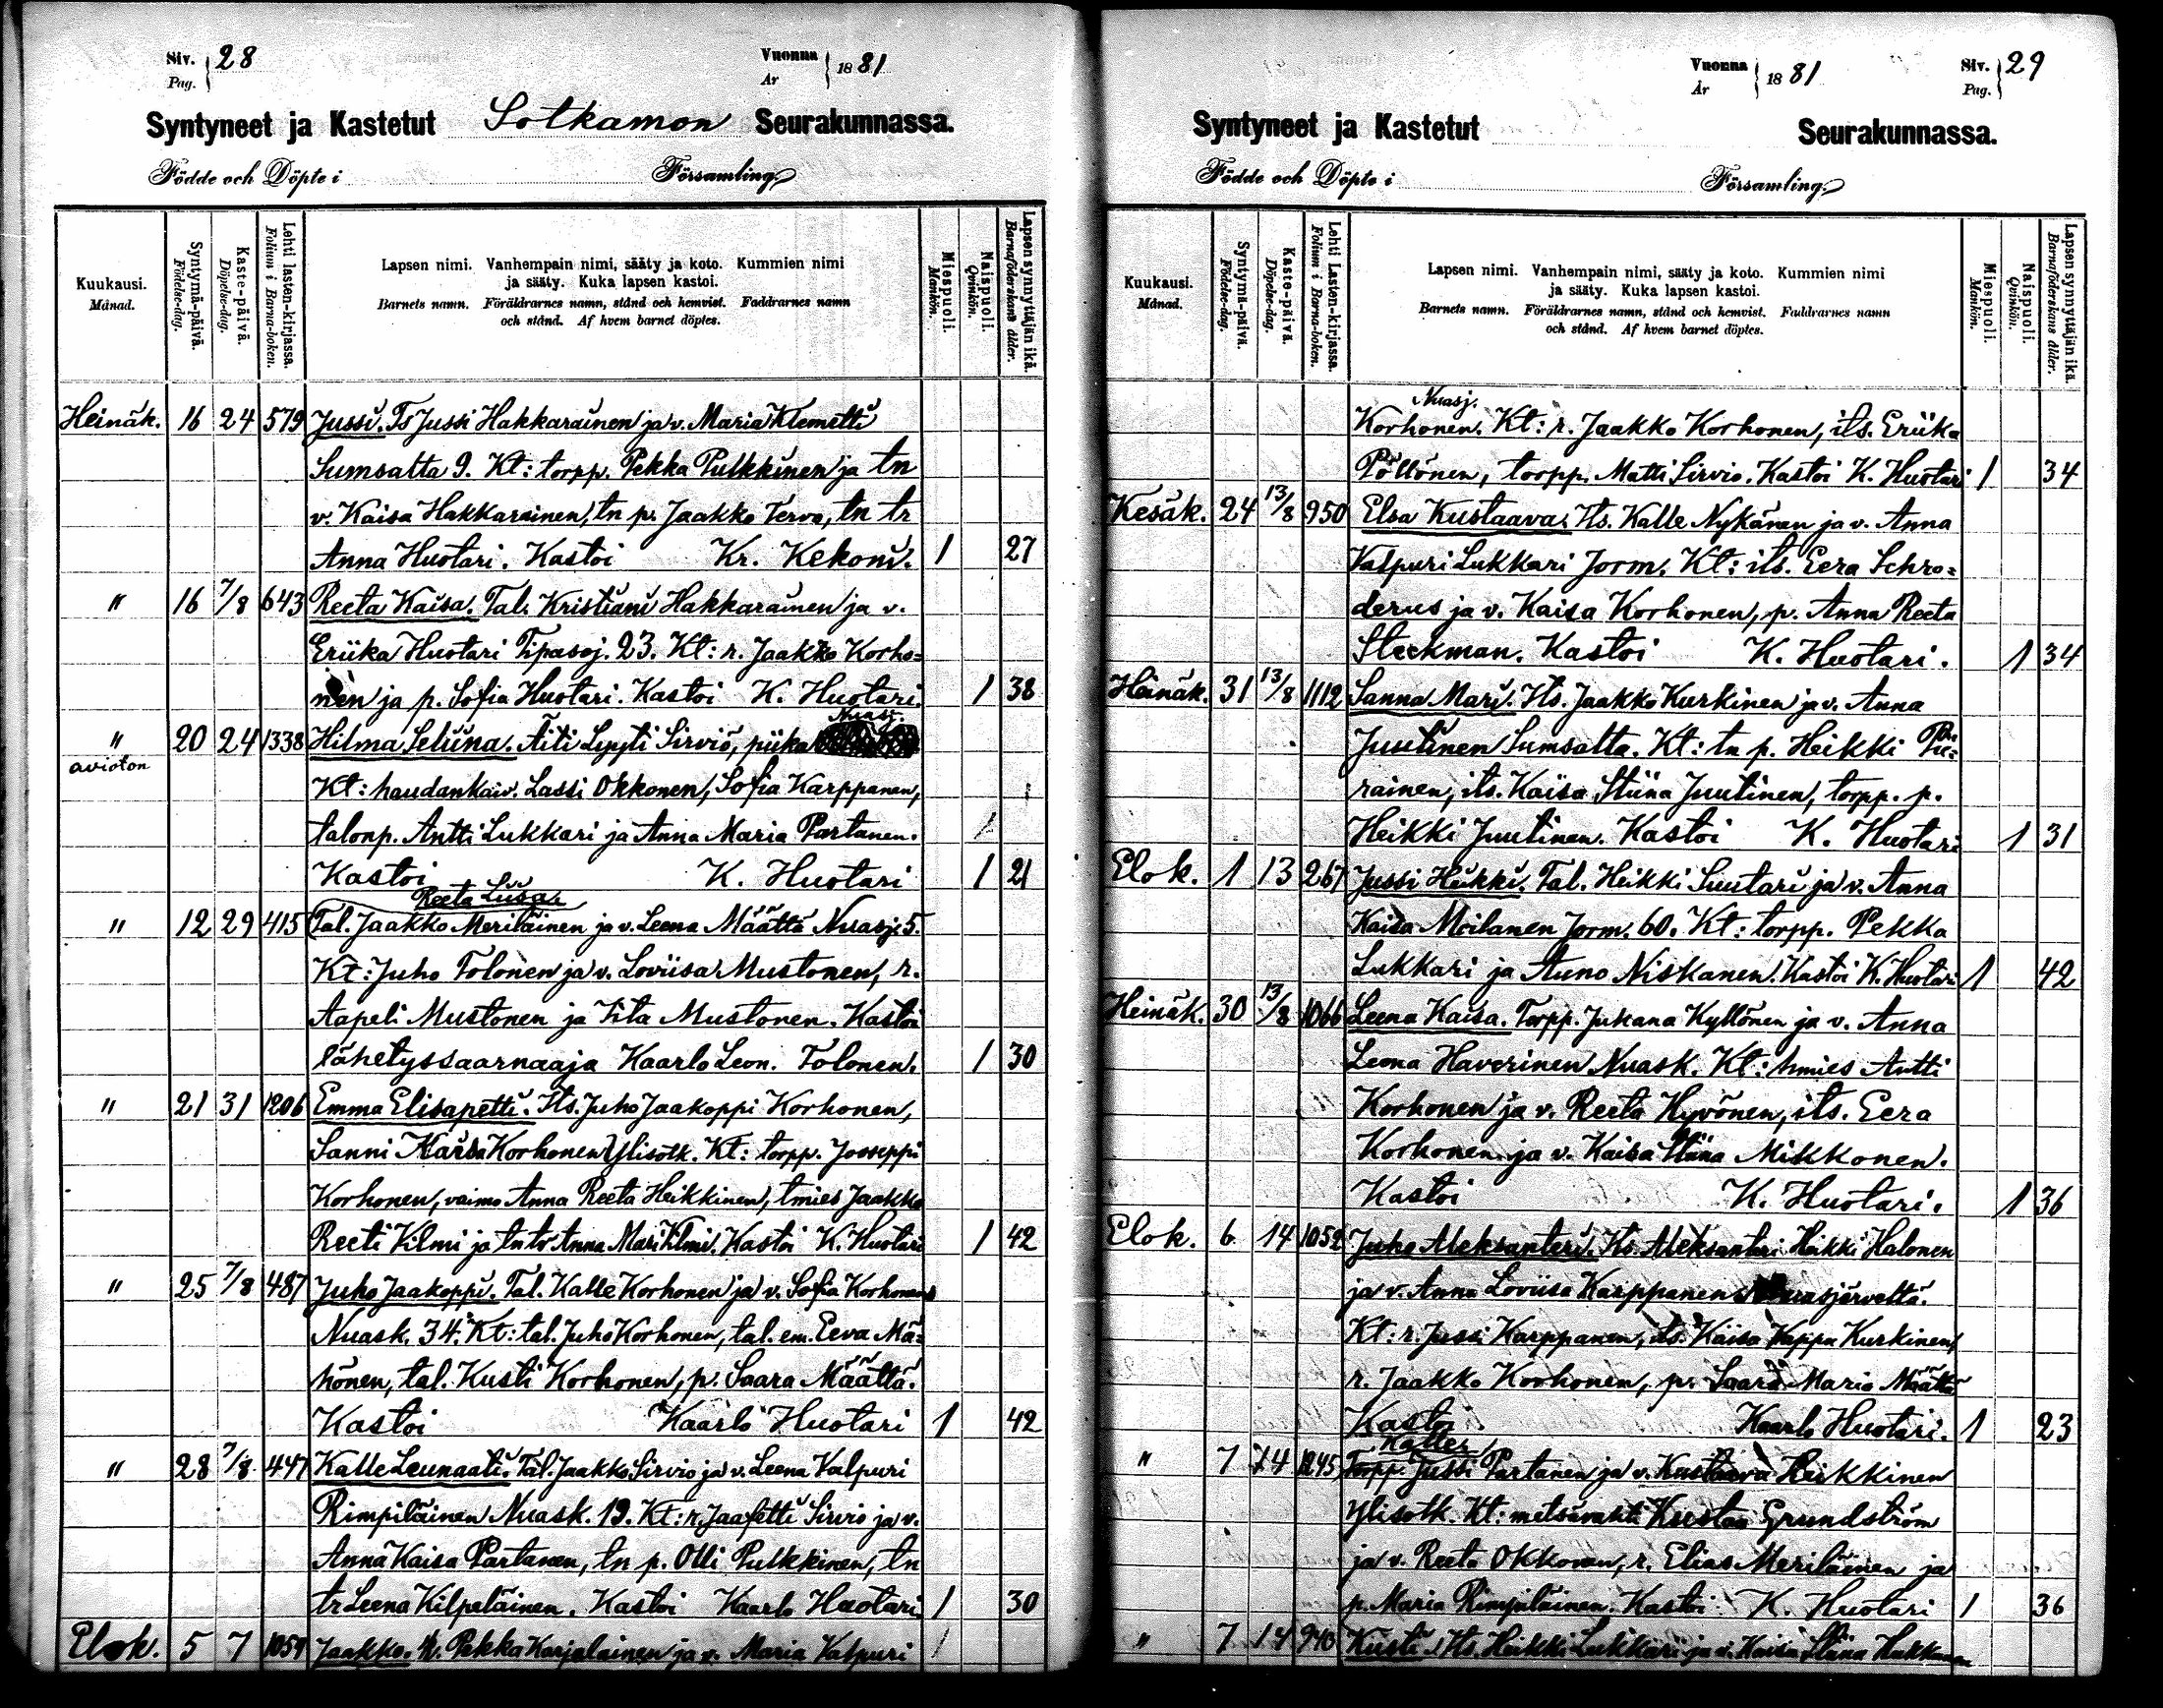 Siv. 28
Pag.
Vuonna 1881
År
Syntyneet ja Kastetut Sotkamon Seurakunnassa.
Födde och Döpte i Församling.
Kuukausi.
Månad.
Syntymä-päivä.
Födelse-dag.
Kaste-päivä.
Döpelse-dag.
Lehti lasten-kirjassa.
Folium i Barna-boken.
Lapsen nimi. Vanhempain nimi, sääty ja koto. Kummien nimi
ja sääty. Kuka lapsen kastoi.
Barnets namn. Föräldrarnes namn, stånd och hemvist. Faddrarnes namn
och stånd. Af hvem barnet döptes.
Miespuoli.
Mankön.
Naispuoli.
Qvinkön.
Lapsen synnyttäjän ikä.
Barnaföderskans ålder.
Heinäk. 16 24 579 Jussi. Ts Jussi Hakkarainen ja v. Maria Klemetti
Sumsatta 9. Kt: torpp. Pekka Pulkkinen ja tn
v. Kaisa Hakkarainen, tn p. Jaakko Tervo, tn tr
Anna Huotari. Kastoi Kr. Kekoni. 1 27
" 16 7/8 643 Reeta Kaisa. Tal. Kristiani Hakkarainen ja v.
Eriika Huotari Tipasoj. 23. Kt: r. Jaakko Korho=
nen ja p. Sofia Huotari. Kastoi K. Huotari. 1 38
Nuasj.
" 20 24 1338 Hilma Seliina. Äiti Lyyti Sirviö, piika
avioton
Kt: haudankaiv. Lassi Okkonen, Sofia Karppanen,
talonp. Antti Lukkari ja Anna Maria Partanen.
Kastoi K. Huotari 1 21
Reeta Liisa
" 12 29 415 Tal. Jaakko Meriläinen ja v. Leena Määttä Nuasj. 5.
Kt: Juho Tolonen ja v. Loviisa Mustonen, r.
Aapeli Mustonen ja Iita Mustonen. Kastoi
lähetyssaarnaaja Kaarlo Leon. Tolonen. 1 30
" 21 31 1206 Emma Elisapetti. Its. Juho Jaakoppi Korhonen,
Sanni Korhonen Ylisotk. Kt: torpp. Jooseppi
Korhonen, vaimo Anna Reeta Heikkinen, tmies Jaakko
Reeti Kilmi ja tn tr Anna Mari Kilmi. Kastoi K. Huotari 1 42
" 25 7/8 487 Juho Jaakoppi. Tal. Kalle Korhonen ja v. Sofia Korhonen
Nuask. 34. Kt: tal. Juho Korhonen, tal. em. Eeva Mä=
hönen, tal. Kusti Korhonen, p. Saara Määttä.
Kastoi Kaarlo Huotari 1 42
" 28 7/8 447 Kalle Leunaati. Tal. Jaakko Sirvio ja v. Leena Valpuri
Rimpiläinen Nuask. 19. Kt: r. Jaafetti Sirvio ja v.
Anna Kaisa Partanen, tn p. Olli Pulkkinen, tn
tr Leena Kilpeläinen. Kastoi Kaarlo Huotari. 1 30
Elok. 5 7 1059 Jaakko. Pekka Karjalainen ja v. Maria Valpuri
Vuonna 1881
År
Siv. 29
Pag.
Syntyneet ja Kastetut Seurakunnassa.
Födde och Döpte i Församling.
Kuukausi.
Månad.
Syntymä-päivä.
Födelse-dag.
Kaste-päivä.
Döpelse-dag.
Lehti Lasten-kirjassa.
Folium i Barna-boken.
Lapsen nimi. Vanhempain nimi, sääty ja koto. Kummien nimi
ja sääty. Kuka lapsen kastoi.
Barnets namn. Föräldrarnes namn, stånd och hemvist. Faddrarnes namn
och stånd. Af hvem barnet döptes.
Miespuoli.
Mankön.
Naispuoli.
Quinkön.
Lapsen synnyttäjän ikä.
Barnaföderskans ålder.
Nuasj.
Korhonen. Kt: r. Jaakko Korhonen, its. Eriika
Pöllönen, torpp. Matti Sirvio. Kastoi K. Huotari 1 34
Kesäk. 24 13/8 950 Elsa Kustaava. Its. Kalle Nykänen ja v. Anna
Valpuri Lukkari Jorm. Kt: its. Eera Schro=
derus ja v. Kaisa Korhonen, p. Anna Reeta
Steckman. Kastoi K. Huotari. 1 34
Heinäk. 31 13/8 1112 Sanna Mari. Its. Jaakko Kurkinen ja v. Anna
Juutinen Sumsatta. Kt: tn p. Heikki Pii=
rainen, its. Kaisa Stiina Juutinen, torpp. p.
Heikki Juutinen. Kastoi K. Huotari 1 31
Elok. 1 13 267 Jussi Heikki. Tal. Heikki Suutari ja v. Anna
Kaisa Moilanen Jorm. 60. Kt: torpp. Pekka
Lukkari ja Auno Niskanen. Kastoi K. Huotari 1 42
Heinäk. 30 13/8 1066 Leena Kaisa. Torpp. Juhana Kyllönen ja v. Anna
Leena Haverinen Nuask. Kt: tmies Antti
Korhonen ja v. Reeta Hyvönen, its. Eera
Korhonen ja v. Kaisa Stiina Mikkonen.
Kastoi K. Huotari. 1 36
Elok. 6 14 1052 Juho Aleksanteri. Its. Aleksanteri Heikki Halonen
ja v. Anna Loviisa Karppanen Nuasjärveltä.
Kt: r. Jussi Karppanen, its. Kaisa Vappu Kurkinen,
r. Jaakko Korhonen, p. Saara Maria Määttä
Kastoi Kaarlo Huotari. 1 23
Kalle
" 7 14 1245 Torpp. Jussi Partanen ja v. Kustaava Heikkinen
Ylisotk. Kt: metsävahti Kustaa Grundström
ja v. Reeta Okkonen, r. Elias Meriläinen ja
p. Maria Rimpiläinen. Kastoi K. Huotari 1 36
" 7 14 940 Kusti. Its. Heikki Lukkari ja v. Kaisa Stiina